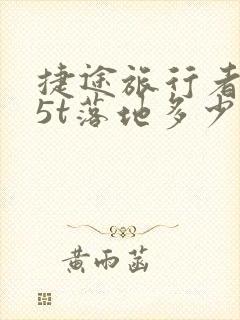 捷途旅行者
5t落地多少
黄雨菡